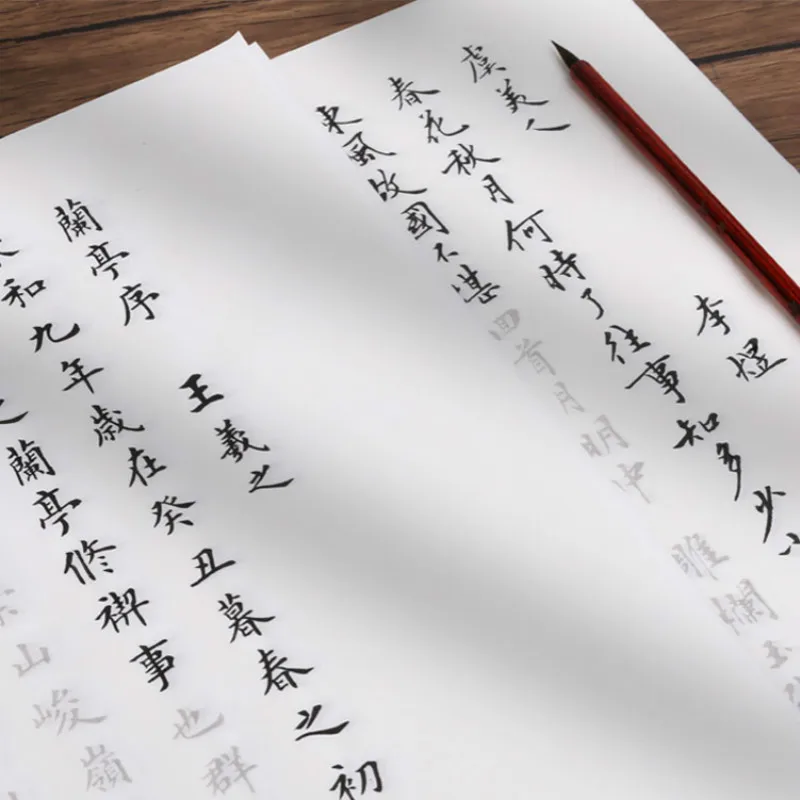 虞美人
李煜
春花秋月何時了往事知多少小
東風故國不堪回首月明中雕欄玉
蘭亭序
王羲之
和九年歲在癸丑暮春之初
蘭亭修禊事也群
山峻嶺